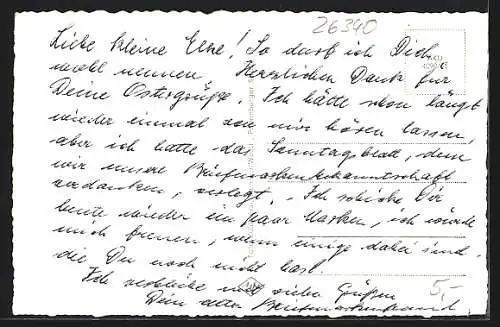 26340
Liebe kleine Else! So darf ich Dich
wohl nennen. Herzlichen Dank für
Deine Ostergrüße. Ich hätte schon längst
wieder einmal von mir hören lassen,
aber ich hatte das Sonntagsblatt, dem
wir unsere Briefmarkenbekanntschaft
verdanken, verlegt. - Ich schicke Dir
heute wieder ein paar Marken, ich würde
mich freuen, wenn einige dabei sind,
die Du noch nicht hast.
Ich verbleibe mit vielen Grüßen
Dein alter Briefmarkenfreund
5,-